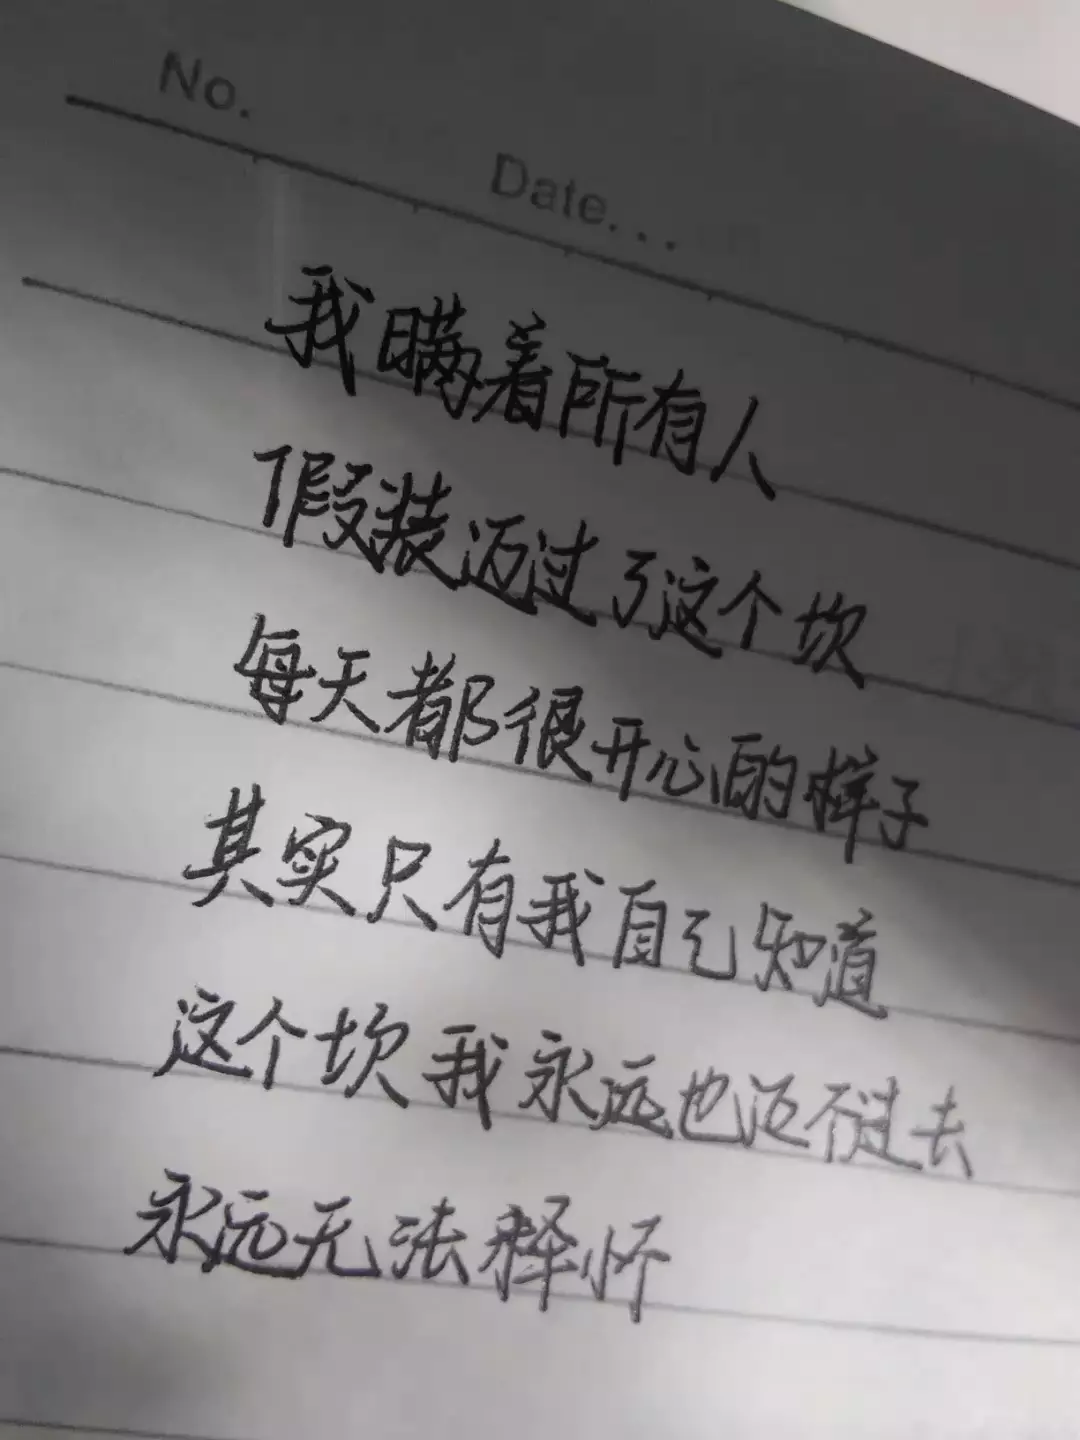 No.
Date...
我瞒着所有人
假装迈过了这个坎
每天都很开心的样子
其实只有我自己知道
这个坎我永远也迈不过去
永远无法释怀